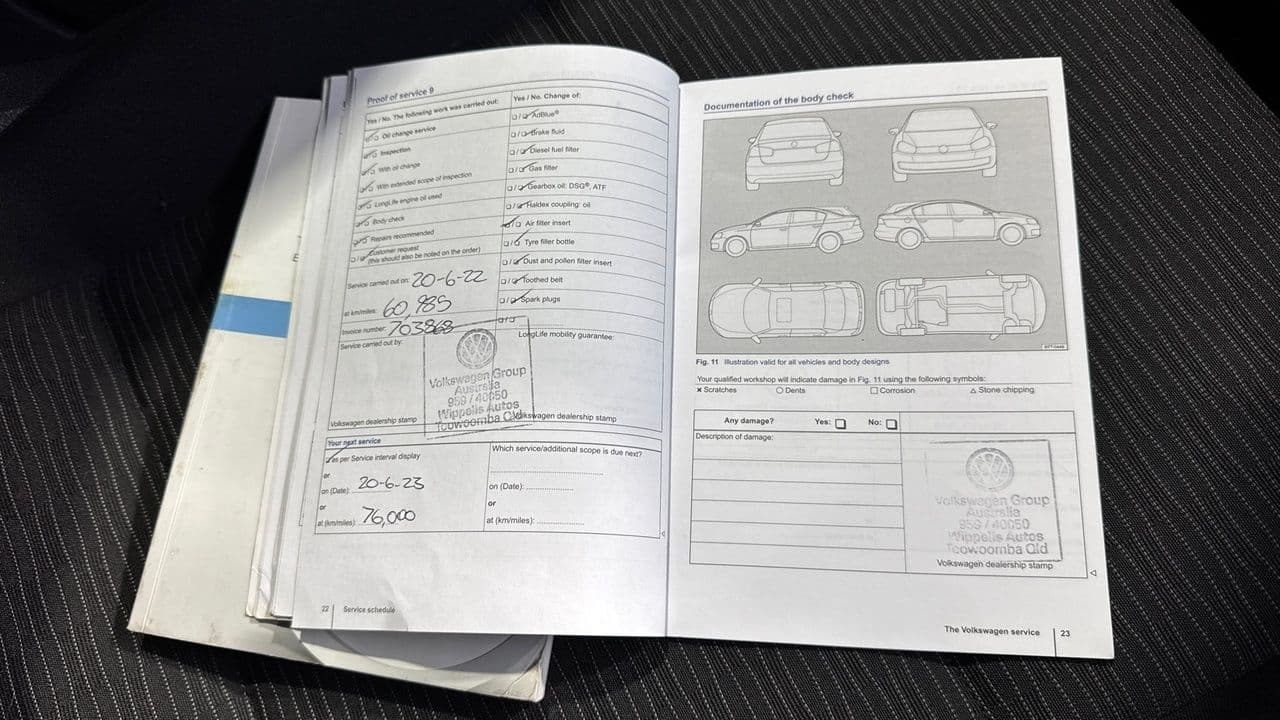 Proof of service 9
Yes / No. The following work was carried out:
Oil change service
Inspection
With oil change
With extended scope of inspection
LongLife engine oil used
Body check
Repairs recommended
Customer request
(this should also be noted on the order)
Service carried out on: 20-6-22
at km/miles: 60,985
Invoice number: 703868
Service carried out by:
Volkswagen dealership stamp
Yes / No. Change of:
AdBlue®
Brake fluid
Diesel fuel filter
Gas filter
Gearbox oil: DSG®, ATF
Haldex coupling: oil
Air filter insert
Tyre filler bottle
Dust and pollen filter insert
Toothed belt
Spark plugs
LongLife mobility guarantee:
Volkswagen Group
Australia
959 / 40050
Wippells Autos
Toowoomba Qld
Volkswagen dealership stamp
Your next service
as per Service interval display
or
on (Date): 20-6-23
or
at (km/miles): 76,000
Which service/additional scope is due next?
on (Date):
or
at (km/miles):
22 Service schedule
Documentation of the body check
Fig. 11 Illustration valid for all vehicles and body designs
Your qualified workshop will indicate damage in Fig. 11 using the following symbols:
× Scratches ○ Dents □ Corrosion △ Stone chipping
Any damage? Yes: □ No: □
Description of damage:
Volkswagen Group
Australia
959 / 40050
Wippells Autos
Toowoomba Qld
Volkswagen dealership stamp
The Volkswagen service 23